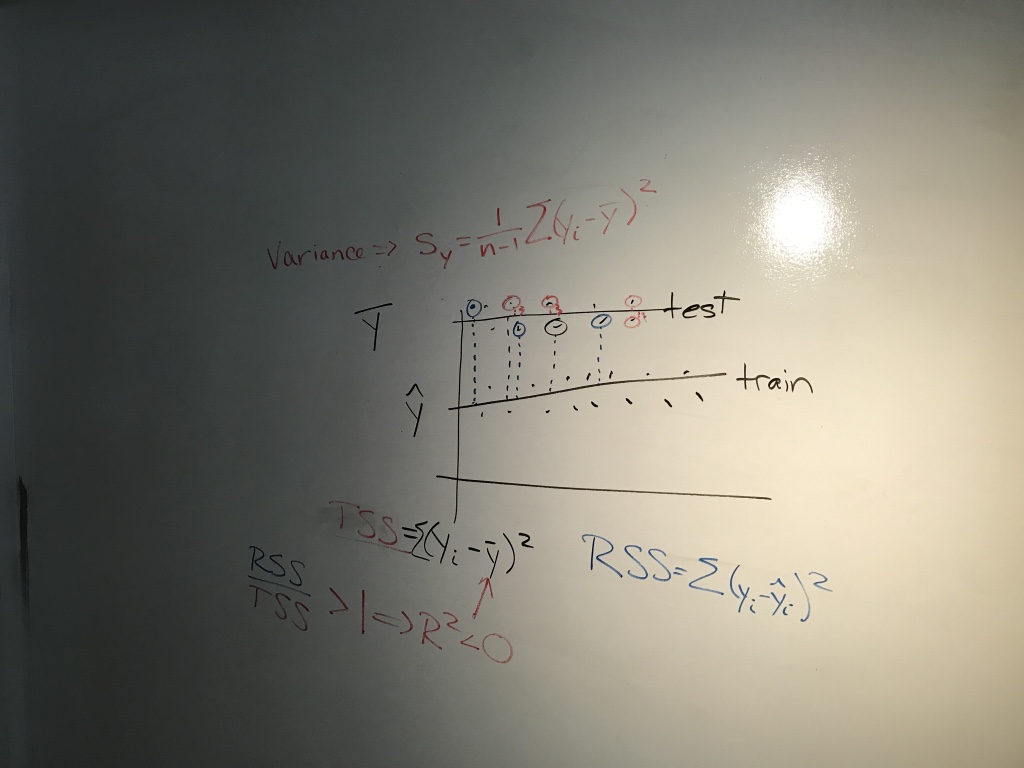 Variance => Sy = 1/(n-1) Σ(yi - y̅)²
Y̅
test
Ŷ
train
TSS = Σ(yi - y̅)²
RSS = Σ(yi - ŷi)²
RSS/TSS > 1 => R² < 0